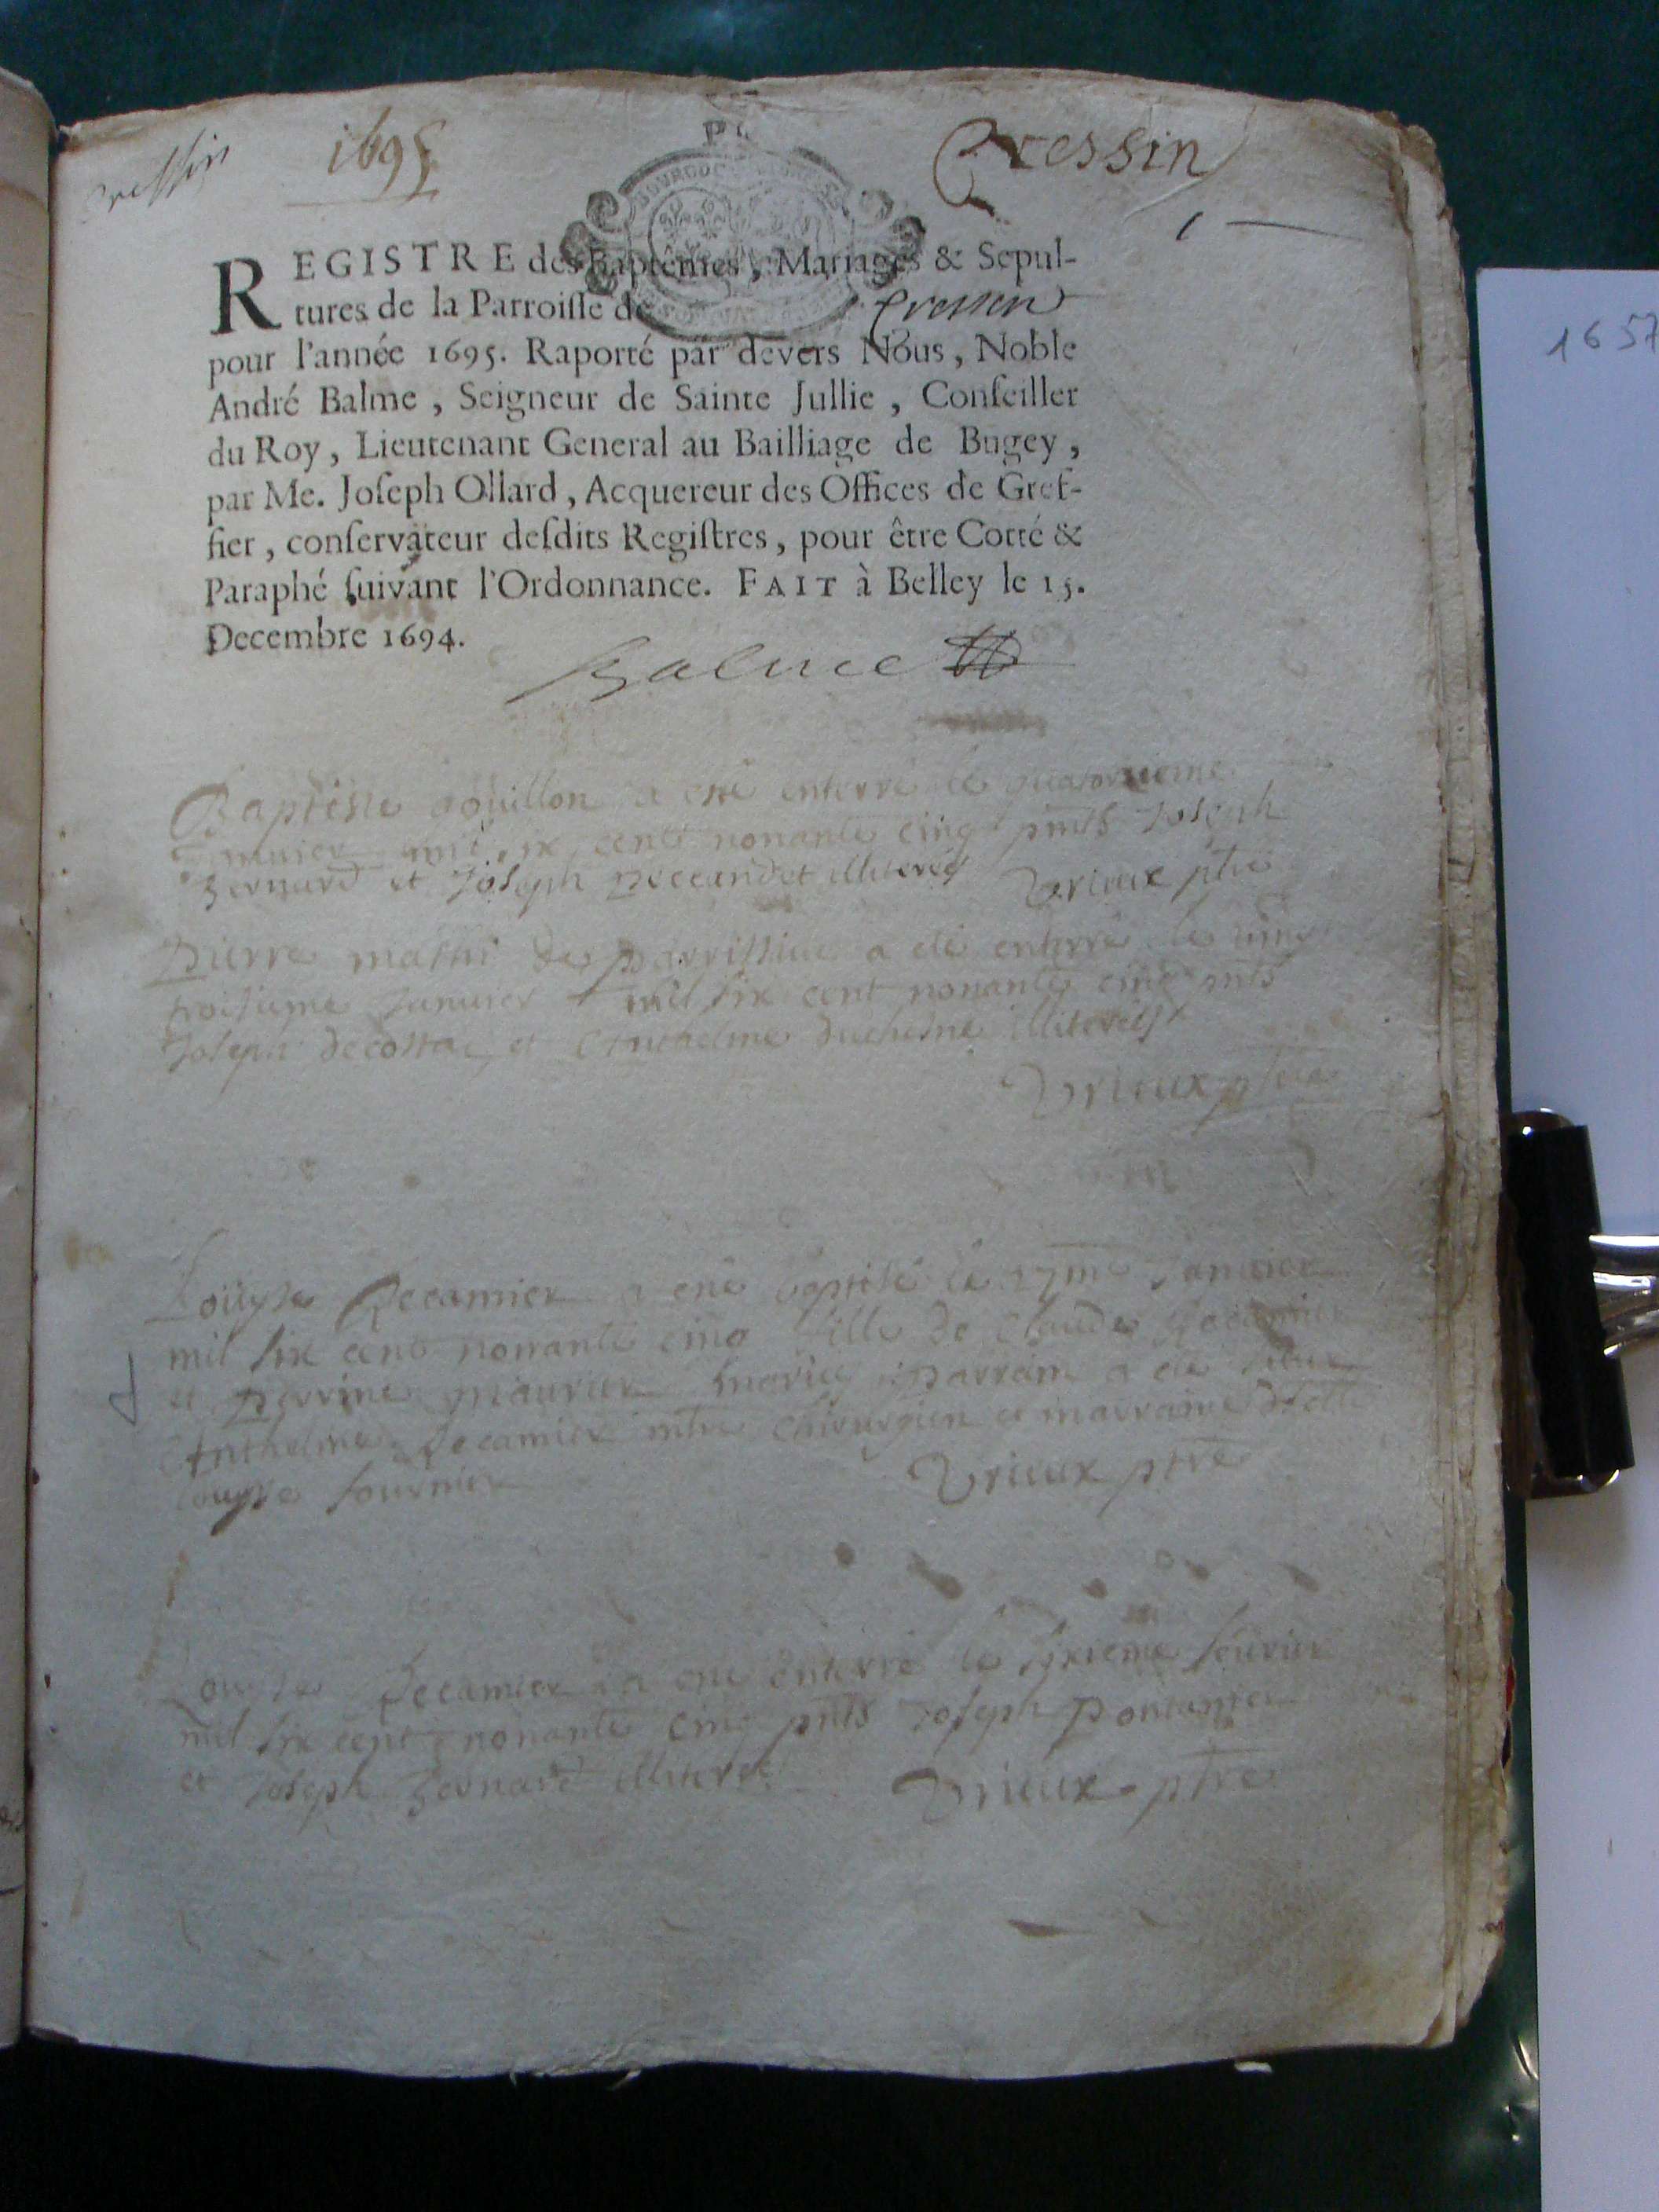 Cressin 1695 Cressin
1
1657
REGISTRE des Baptêmes, Mariages & Sepul-
tures de la Parroisse de Cressin
pour l'année 1695. Raporté par devers Nous, Noble
André Balme, Seigneur de Sainte Jullie, Conseiller
du Roy, Lieutenant General au Bailliage de Bugey,
par Me. Joseph Ollard, Acquereur des Offices de Gref-
fier, conservateur desdits Registres, pour être Cotté &
Paraphé suivant l'Ordonnance. FAIT à Belley le 15.
Decembre 1694.
Balme
Baptiste goüillon a esté enterré le quatorzieme
Januier mil six cent nonante cinq pnts Joseph
Bernard et Joseph illiterés Vrieux ptre
Pierre de a eté enterré le
troisieme Januier mil six cent nonante cinq pnts
Joseph decosta et Anthelme duchesne illiterés
Vrieux ptre
Loüyse Recamier a esté baptisé le 27me Januier
mil six cent nonante cinq fille de Claude Recamier
et Perrine mariés parrain a eté sieur
Anthelme Recamier mtre chirurgien et marraine
Louyse fournier Vrieux ptre
Louyse Recamier a esté enterré le sixieme feurier
mil six cent nonante cinq pnts Joseph
et Joseph Bernard illiterés Vrieux ptre